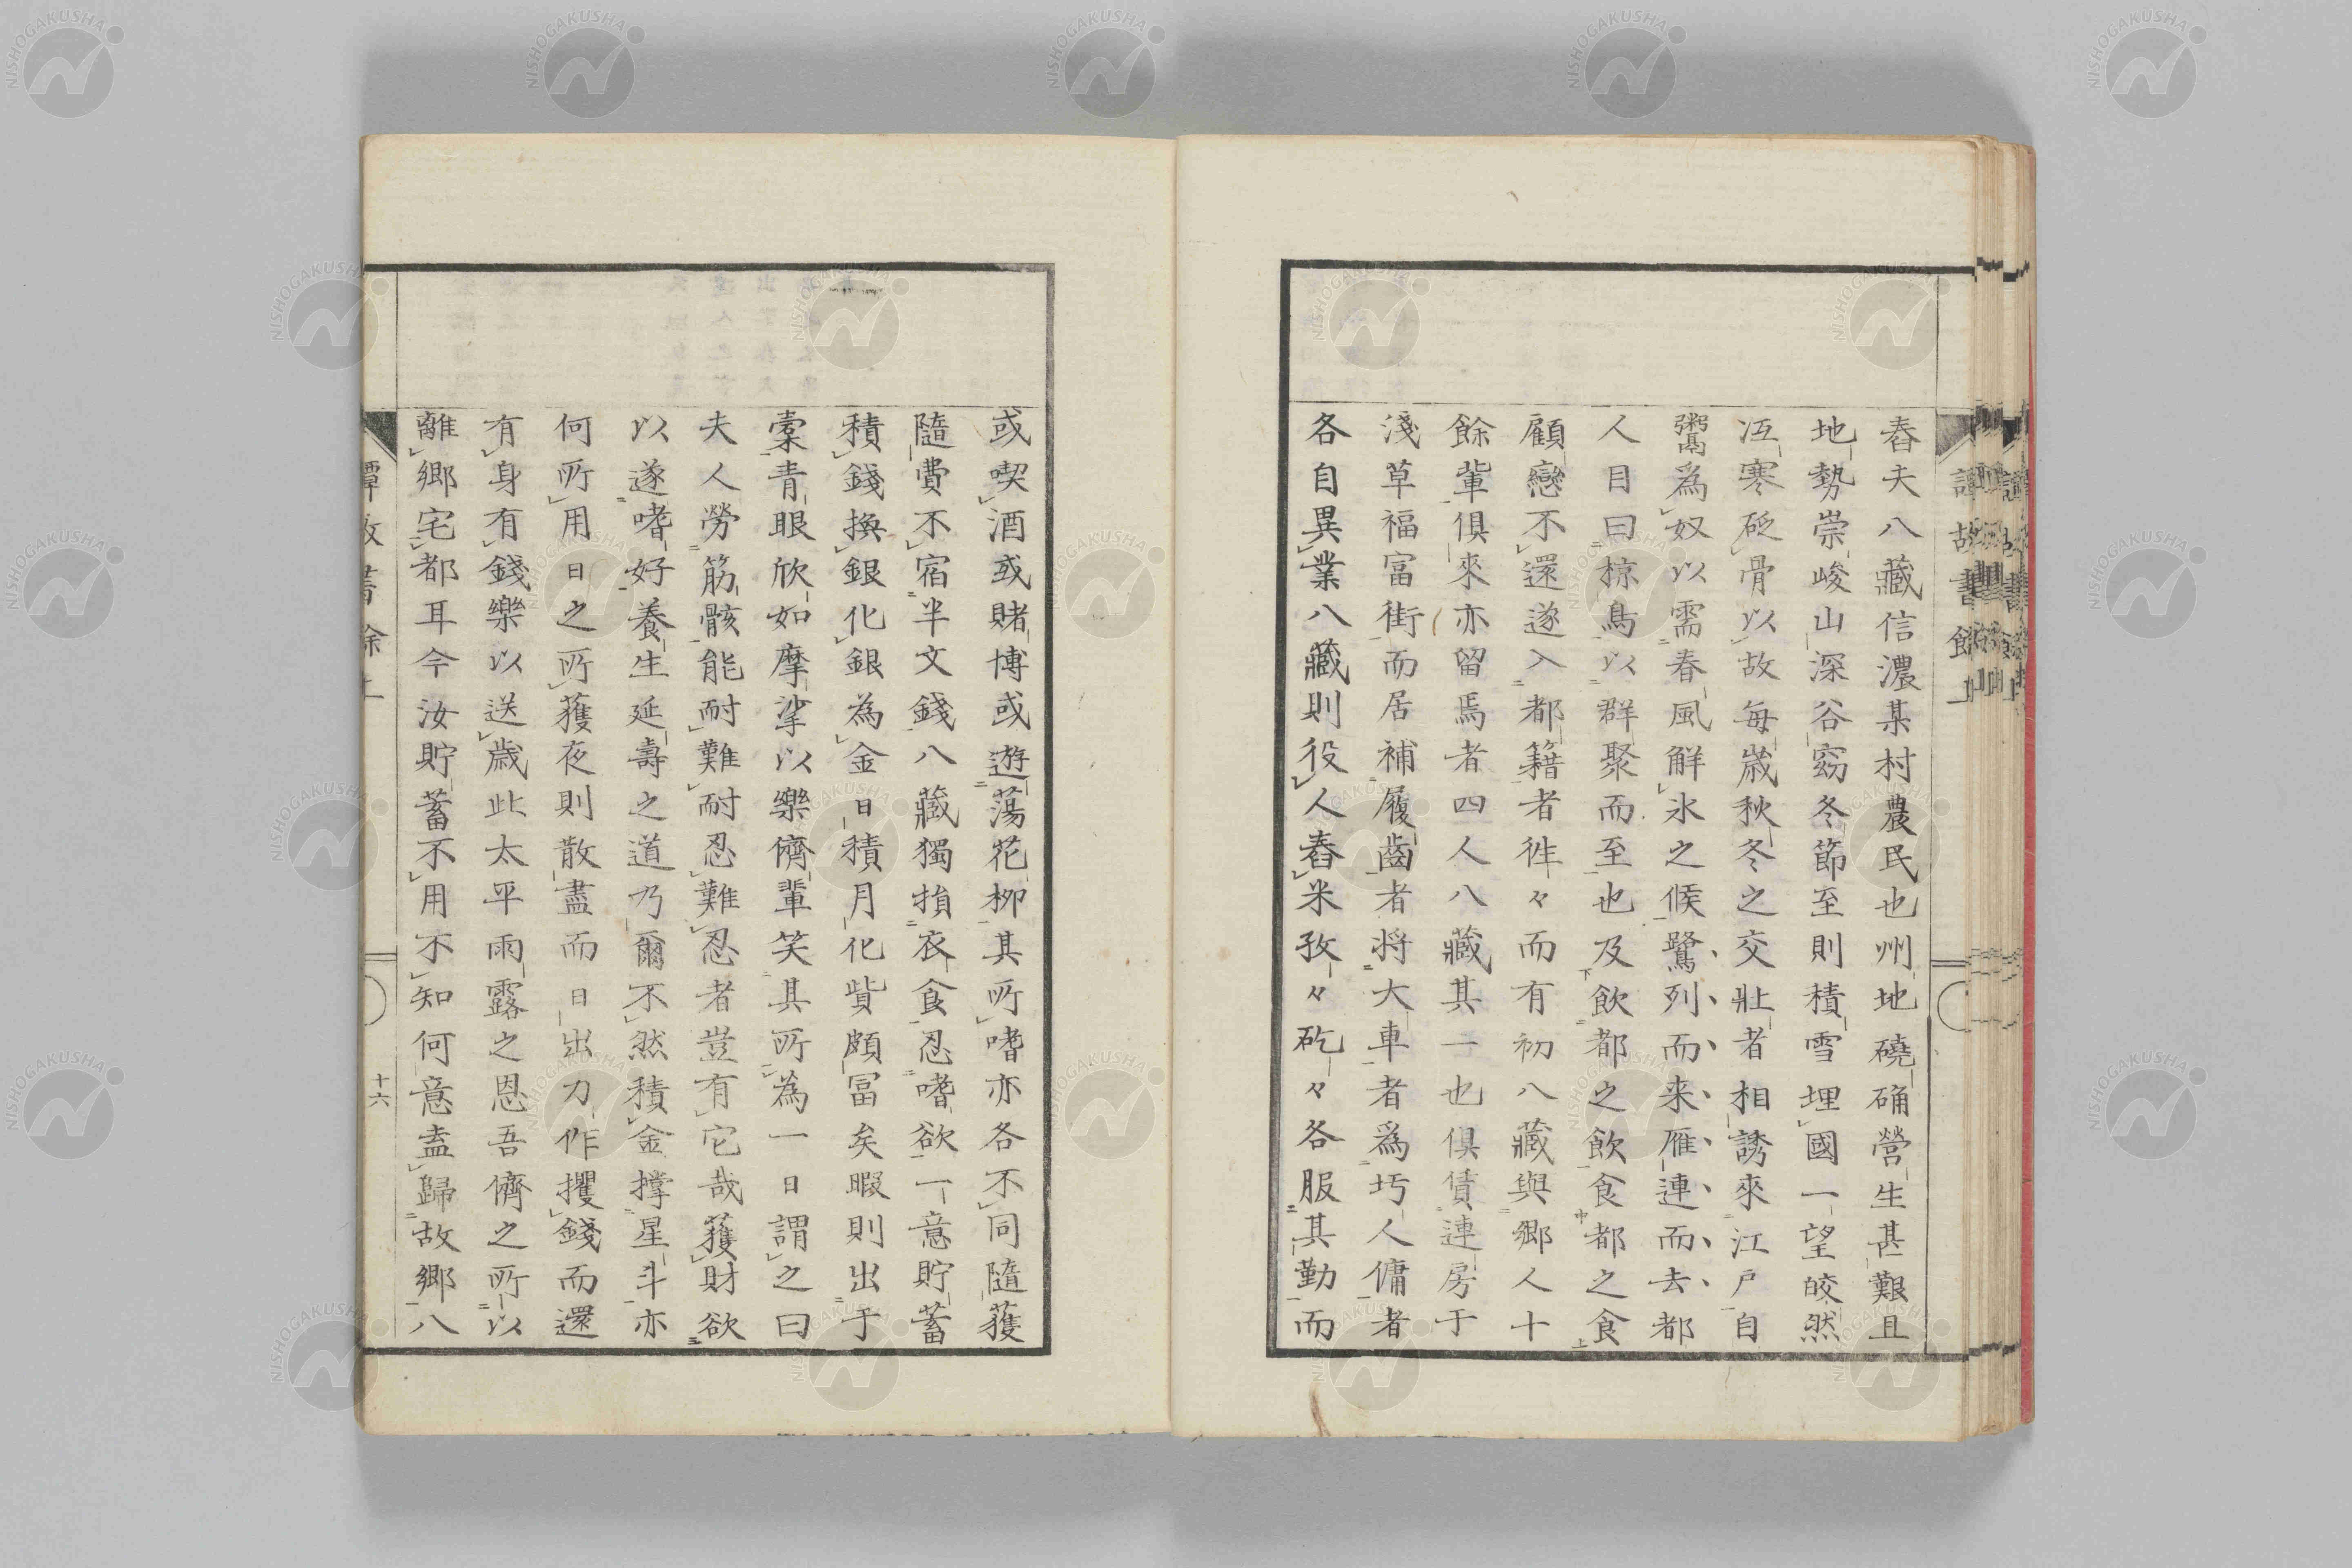 舂夫八藏信濃某村農民也州地磽确營生甚艱且
地勢崇峻山深谷窈冬節至則積雪埋國一望皎然
冱寒砭骨以故每歲秋冬之交壯者相誘來江戶自
鬻爲奴以需春風解氷之候鷺列而来雁連而去都
人目曰椋鳥以群聚而至也及飲都之飲食都之食
顧戀不還遂入都籍者徃々而有初八藏與鄉人十
餘輩俱來亦留焉者四人八藏其一也俱賃連房于
淺草福富街而居補履齒者將大車者爲圬人傭者
各自異業八藏則役人舂米孜々矻々各服其勤而
或喫酒或賭博或遊蕩花柳其所嗜亦各不同隨獲
隨費不宿半文錢八藏獨損衣食忍嗜欲一意貯蓄
積錢換銀化銀為金日積月化貲頗冨矣暇則出于
槖青眼欣如摩挲以樂儕輩笑其所為一日謂之曰
夫人勞筋骸能耐難耐忍難忍者豈有它哉獲財欲
以遂嗜好養生延壽之道乃爾不然積金撐星斗亦
何所用日之所獲夜則散盡而日出力作攫錢而還
有身有錢樂以送歲此太平雨露之恩吾儕之所以
離鄉宅都耳今汝貯蓄不用不知何意盍歸故鄉八
譚故書餘上
十六
譚故書餘上
NISHOGAKUSHA